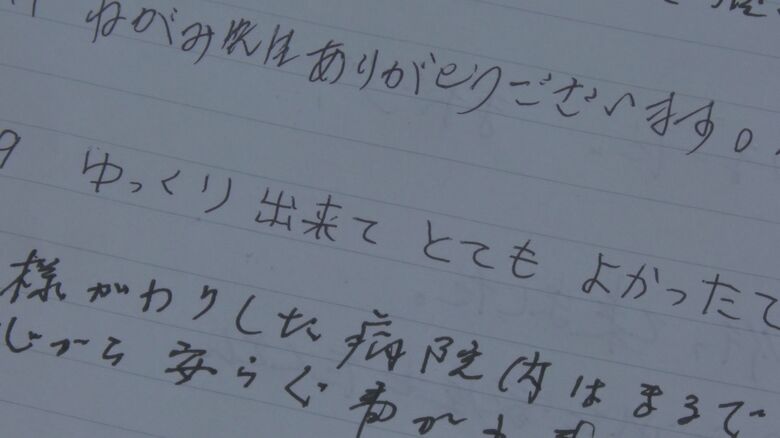 ねがみ先生ありがとうございます。
9 ゆっくり出来て とても よかったで
様がわりした病院内はまるで
安らぐ